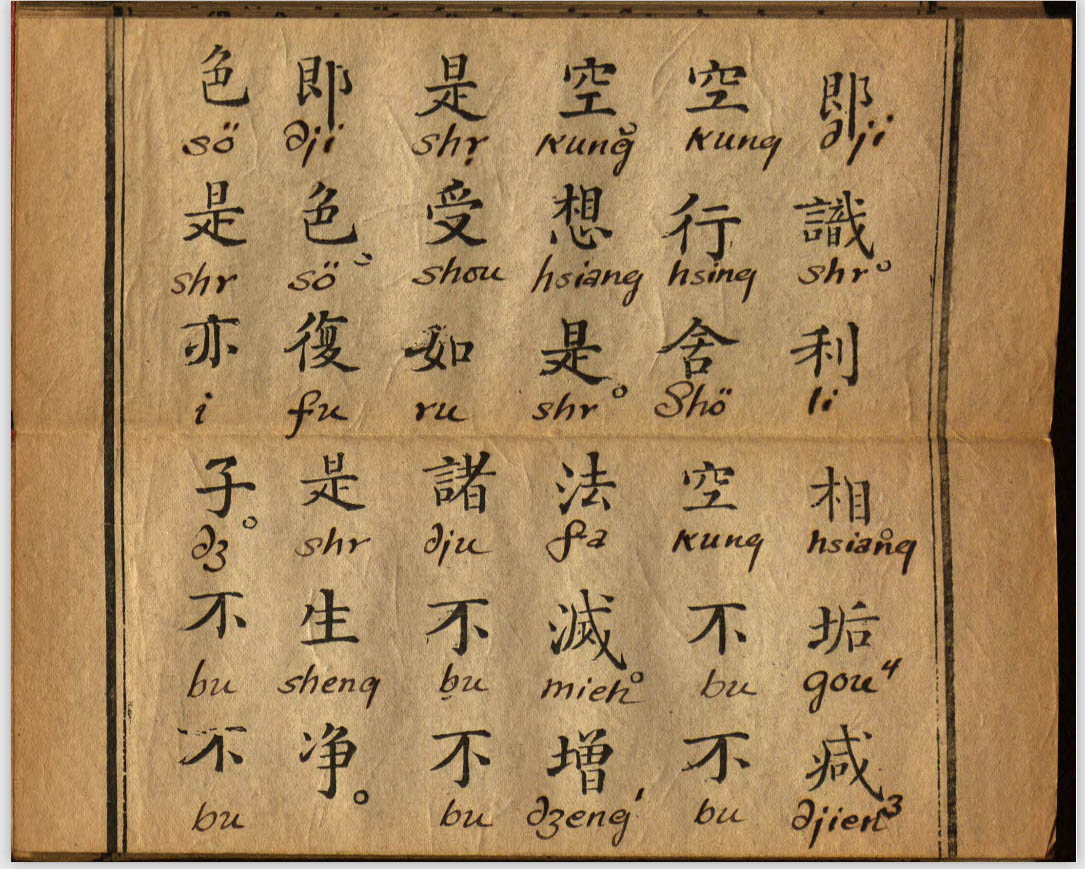 色即是空。空即
sö dji shr kung kung dji
是色。受想行識。
shr sö shou hsiang hsing shr
亦復如是。舍利
i fu ru shr Shö li
子。是諸法空相。
dz shr dju fa kung hsiang
不生不滅。不垢
bu sheng bu mieh bu gou4
不净。不增不减
bu bu dzeng1 bu djien3